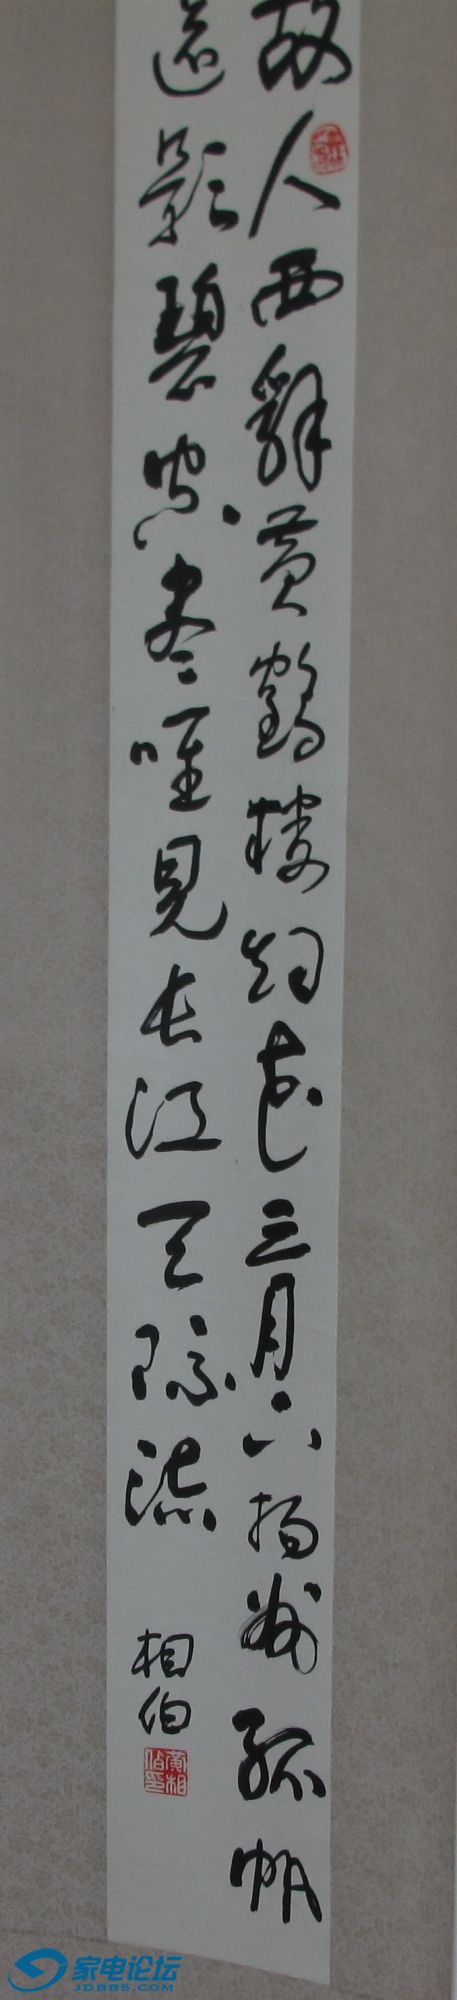 故人西辞黄鹤楼烟花三月下扬州孤帆
远影碧空尽唯见长江天际流
相伯
黄相伯印
家电论坛
JDBBS.COM